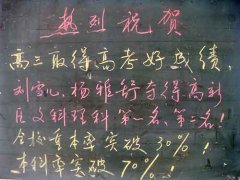 热烈祝贺
高三取得高考好成绩，
刘雪儿、杨雅舒夺得高新
区文科理科第一名、第二名！
全校重本率突破30%！
本科率突破70%！